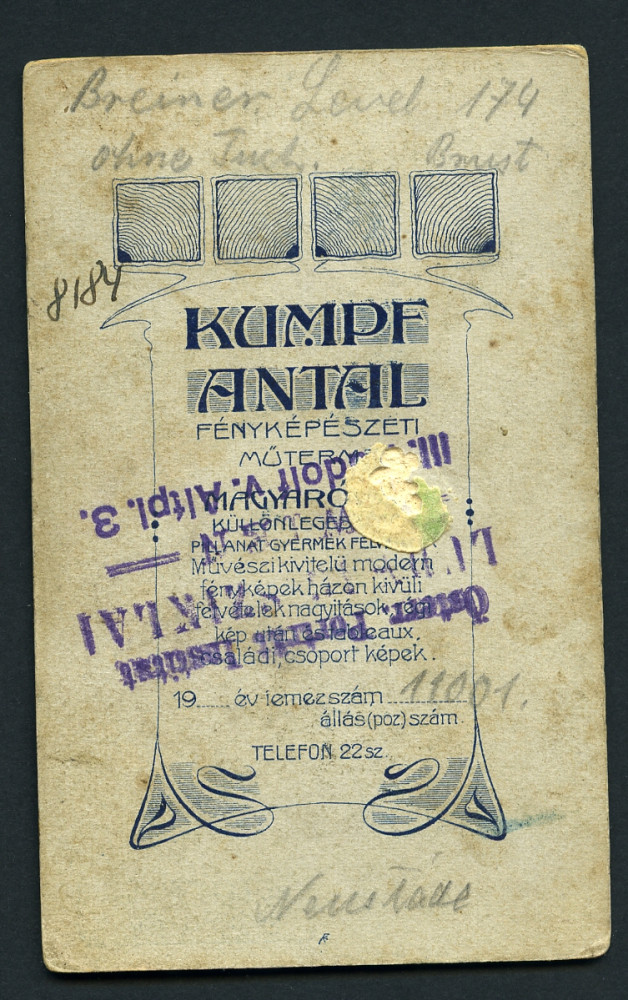 Breiner Level 174
ohne Tuch. Brust
8184
KUMPF
ANTAL
FÉNYKÉPÉSZETI
MŰTERME
MAGYARÓ
KÜLLÖNLEGE
PILLANAT GYERMEK
Művészi kivitelű modern
fényképek házon kivüli
felvételek nagyitások, régi
kép után és tableaux,
családi, csoport képek.
19 év lemez szám 11001.
állás (poz) szám
TELEFON 22 sz.
III. dolf v. Altpl. 3.
Österr. Porträt Institut
Neustädt